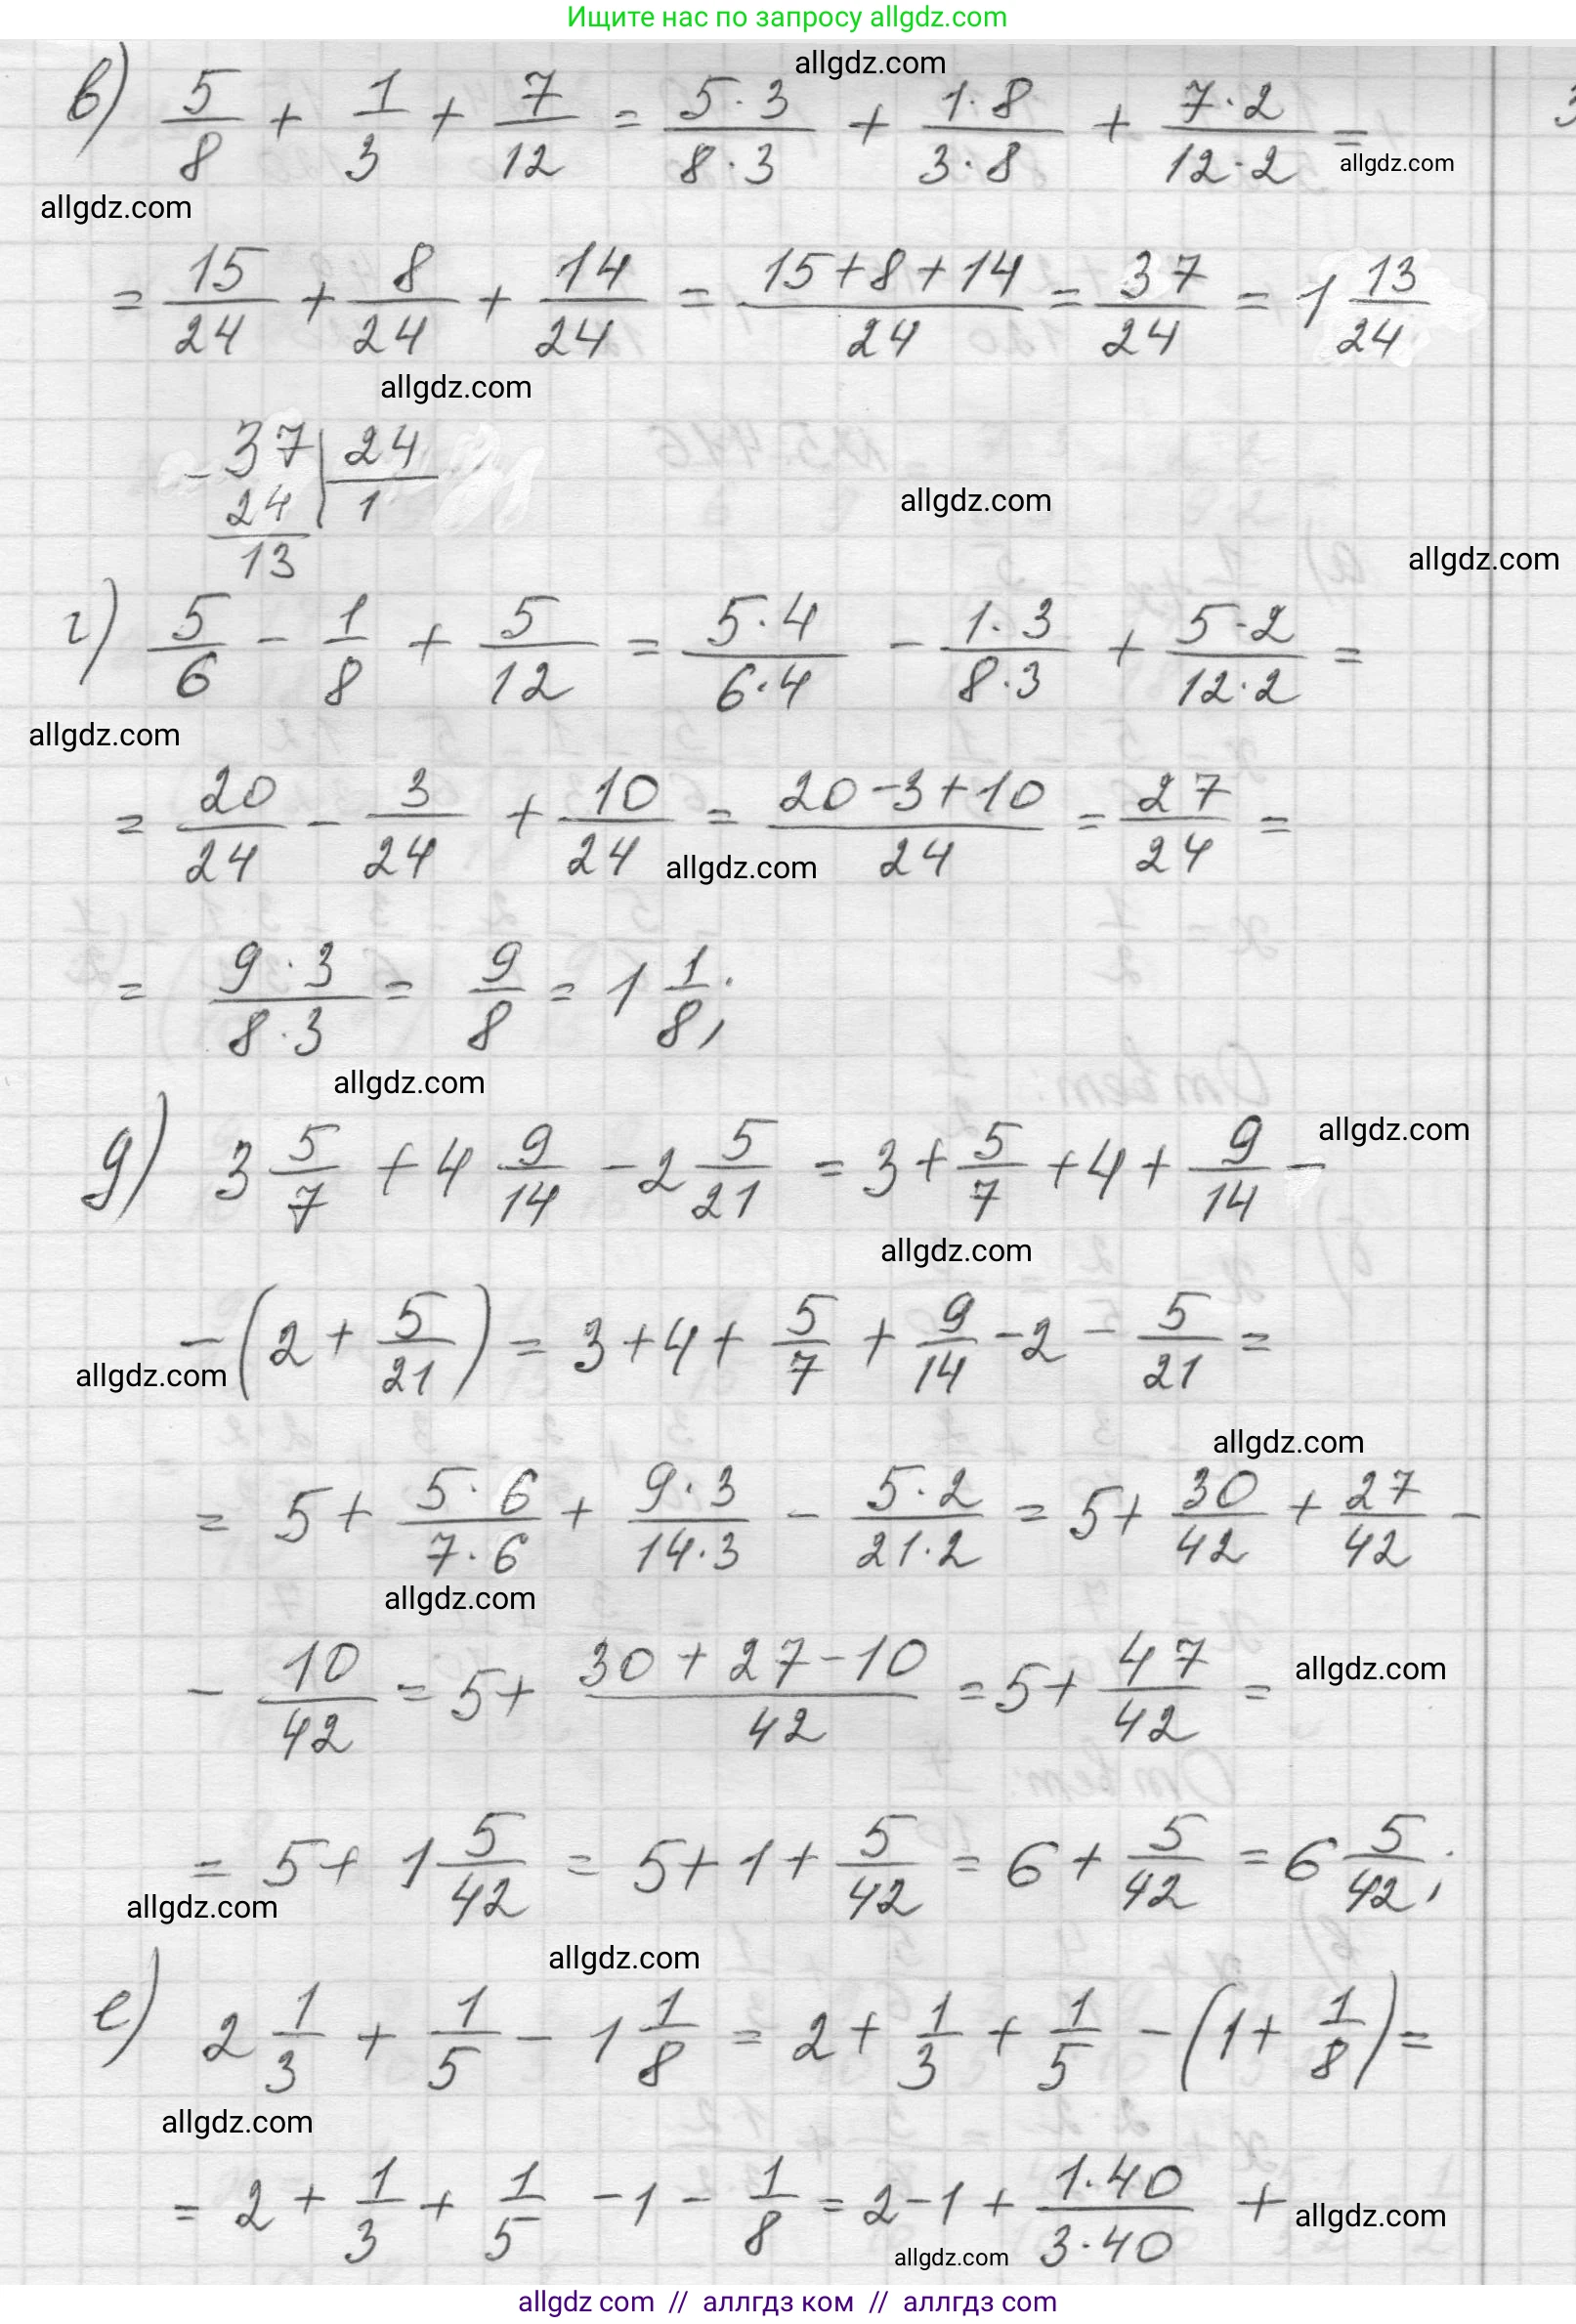 Ищите нас по запросу allgdz.com
allgdz.com
в) 5/8 + 1/3 + 7/12 = 5·3/8·3 + 1·8/3·8 + 7·2/12·2 =
allgdz.com
allgdz.com
= 15/24 + 8/24 + 14/24 = 15+8+14/24 = 37/24 = 1 13/24
allgdz.com
- 37 | 24
24 | 1
13
allgdz.com
allgdz.com
г) 5/6 - 1/8 + 5/12 = 5·4/6·4 - 1·3/8·3 + 5·2/12·2 =
allgdz.com
= 20/24 - 3/24 + 10/24 = 20-3+10/24 = 27/24 =
allgdz.com
= 9·3/8·3 = 9/8 = 1 1/8;
allgdz.com
allgdz.com
д) 3 5/7 + 4 9/14 - 2 5/21 = 3 + 5/7 + 4 + 9/14 -
allgdz.com
- (2 + 5/21) = 3 + 4 + 5/7 + 9/14 - 2 - 5/21 =
allgdz.com
allgdz.com
= 5 + 5·6/7·6 + 9·3/14·3 - 5·2/21·2 = 5 + 30/42 + 27/42 -
allgdz.com
- 10/42 = 5 + 30+27-10/42 = 5 + 47/42 =
allgdz.com
= 5 + 1 5/42 = 5 + 1 + 5/42 = 6 + 5/42 = 6 5/42;
allgdz.com
allgdz.com
е) 2 1/3 + 1/5 - 1 1/8 = 2 + 1/3 + 1/5 - (1 + 1/8) =
allgdz.com
= 2 + 1/3 + 1/5 - 1 - 1/8 = 2 - 1 + 1·40/3·40 +
allgdz.com
allgdz.com
allgdz com // аллгдз ком // аллгдз com